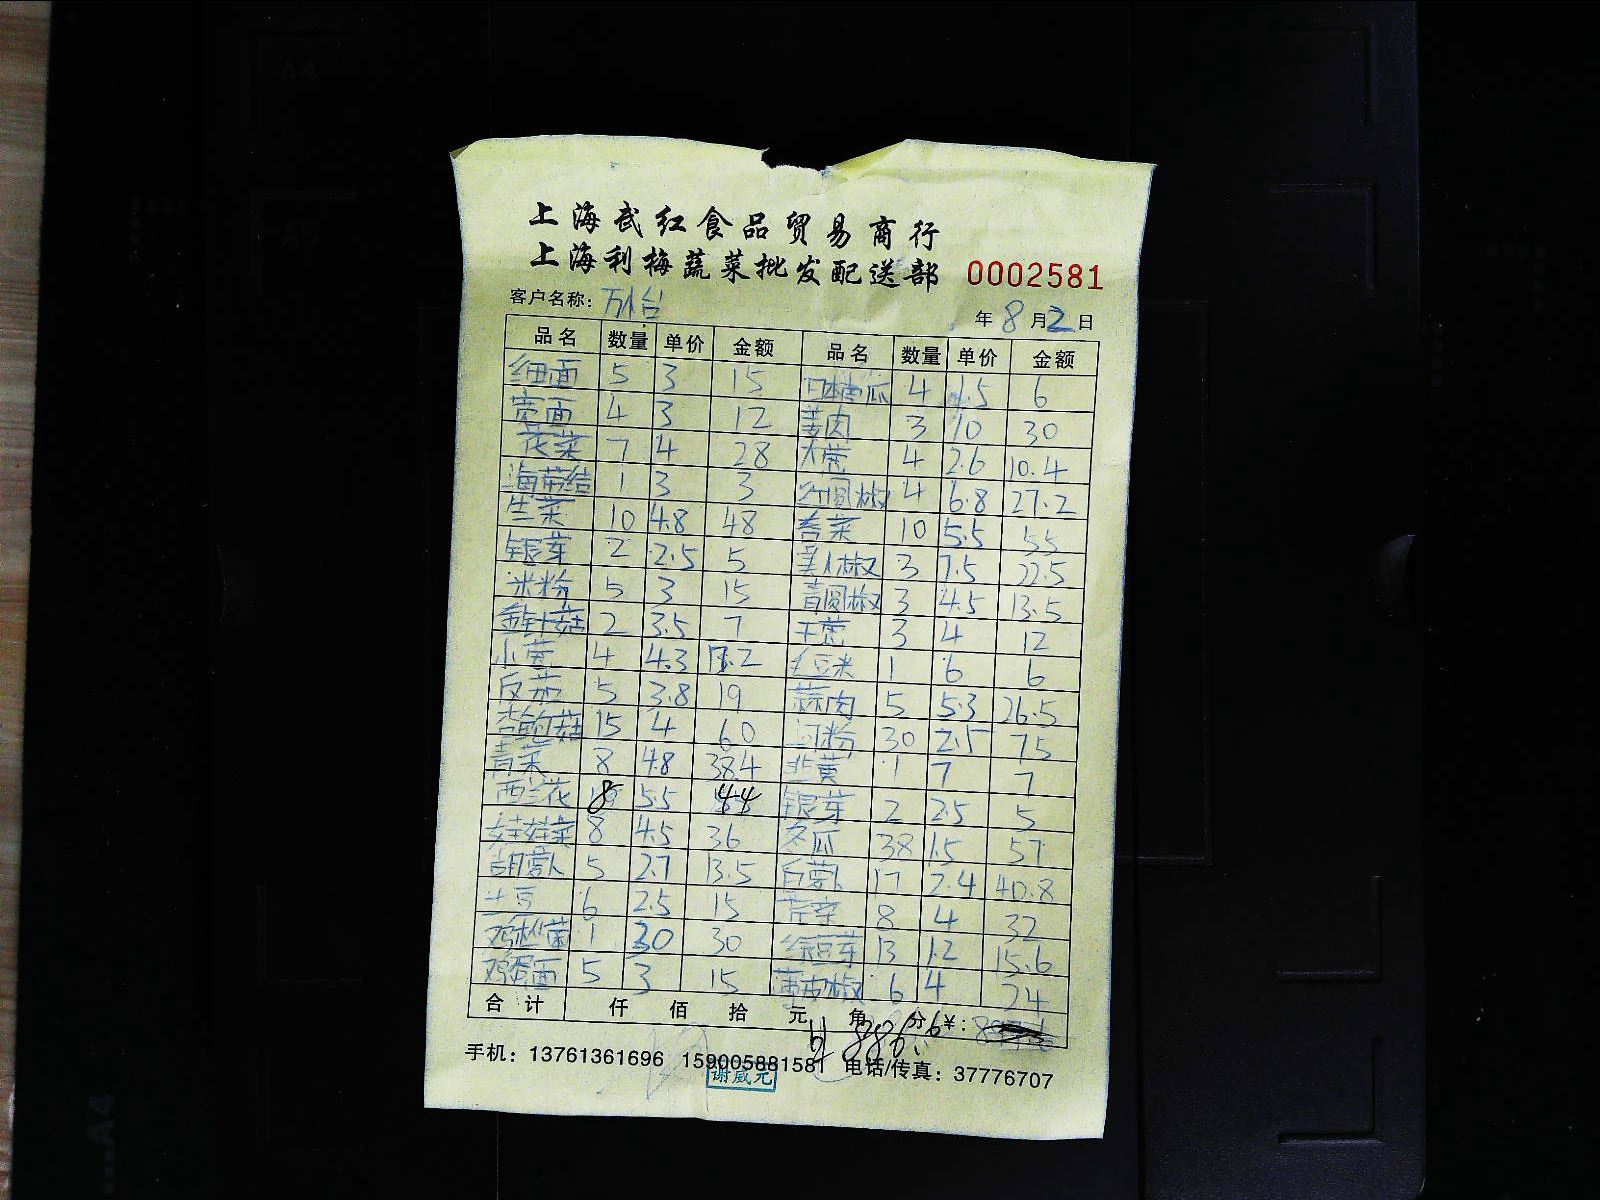 上海武红食品贸易商行
上海利梅蔬菜批发配送部 0002581
客户名称: 年 8 月 2 日
品名 数量 单价 金额 品名 数量 单价 金额
细面 5 3 15 日本南瓜 4 1.5 6
宽面 4 3 12 姜肉 3 10 30
花菜 7 4 28 大葱 4 2.6 10.4
海带结 1 3 3 红圆椒 4 6.8 27.2
生菜 10 4.8 48 香菜 10 5.5 55
银芽 2 2.5 5 美人椒 3 7.5 22.5
米粉 5 3 15 青圆椒 3 4.5 13.5
金针菇 2 3.5 7 干葱 3 4 12
小葱 4 4.3 17.2 毛豆米 1 6 6
反茄 5 3.8 19 蒜肉 5 5.3 26.5
杏鲍菇 15 4 60 河粉 30 2.5 75
青菜 8 4.8 38.4 韭黄 1 7 7
西兰花 8 5.5 44 银芽 2 2.5 5
娃娃菜 8 4.5 36 冬瓜 38 1.5 57
胡萝卜 5 2.7 13.5 白萝卜 17 2.4 40.8
土豆 6 2.5 15 芹菜 8 4 32
鸡枞菌 1 30 30 绿豆芽 13 1.2 15.6
鸡蛋面 5 3 15 薄皮椒 6 4 24
合计 仟 佰 拾 元 角 分 ¥:
886.6
手机: 13761361696 15900588158 电话/传真: 37776707
谢威元